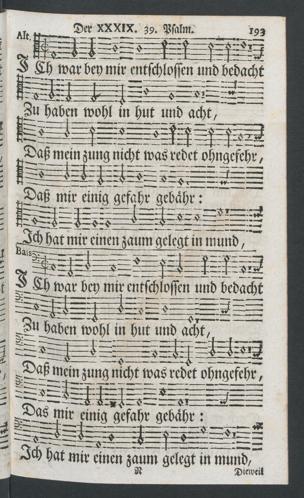 Der XXXIX. 39. Psalm. 193
Alt.
ICh war bey mir entschlossen und bedacht
Zu haben wohl in hut und acht,
Daß mein zung nicht was redet ohngefehr,
Daß mir einig gefahr gebähr:
Ich hat mir einen zaum gelegt in mund,
Bass
ICh war bey mir entschlossen und bedacht
Zu haben wohl in hut und acht,
Daß mein zung nicht was redet ohngefehr,
Das mir einig gefahr gebähr:
Ich hat mir einen zaum gelegt in mund,
N Dieweil